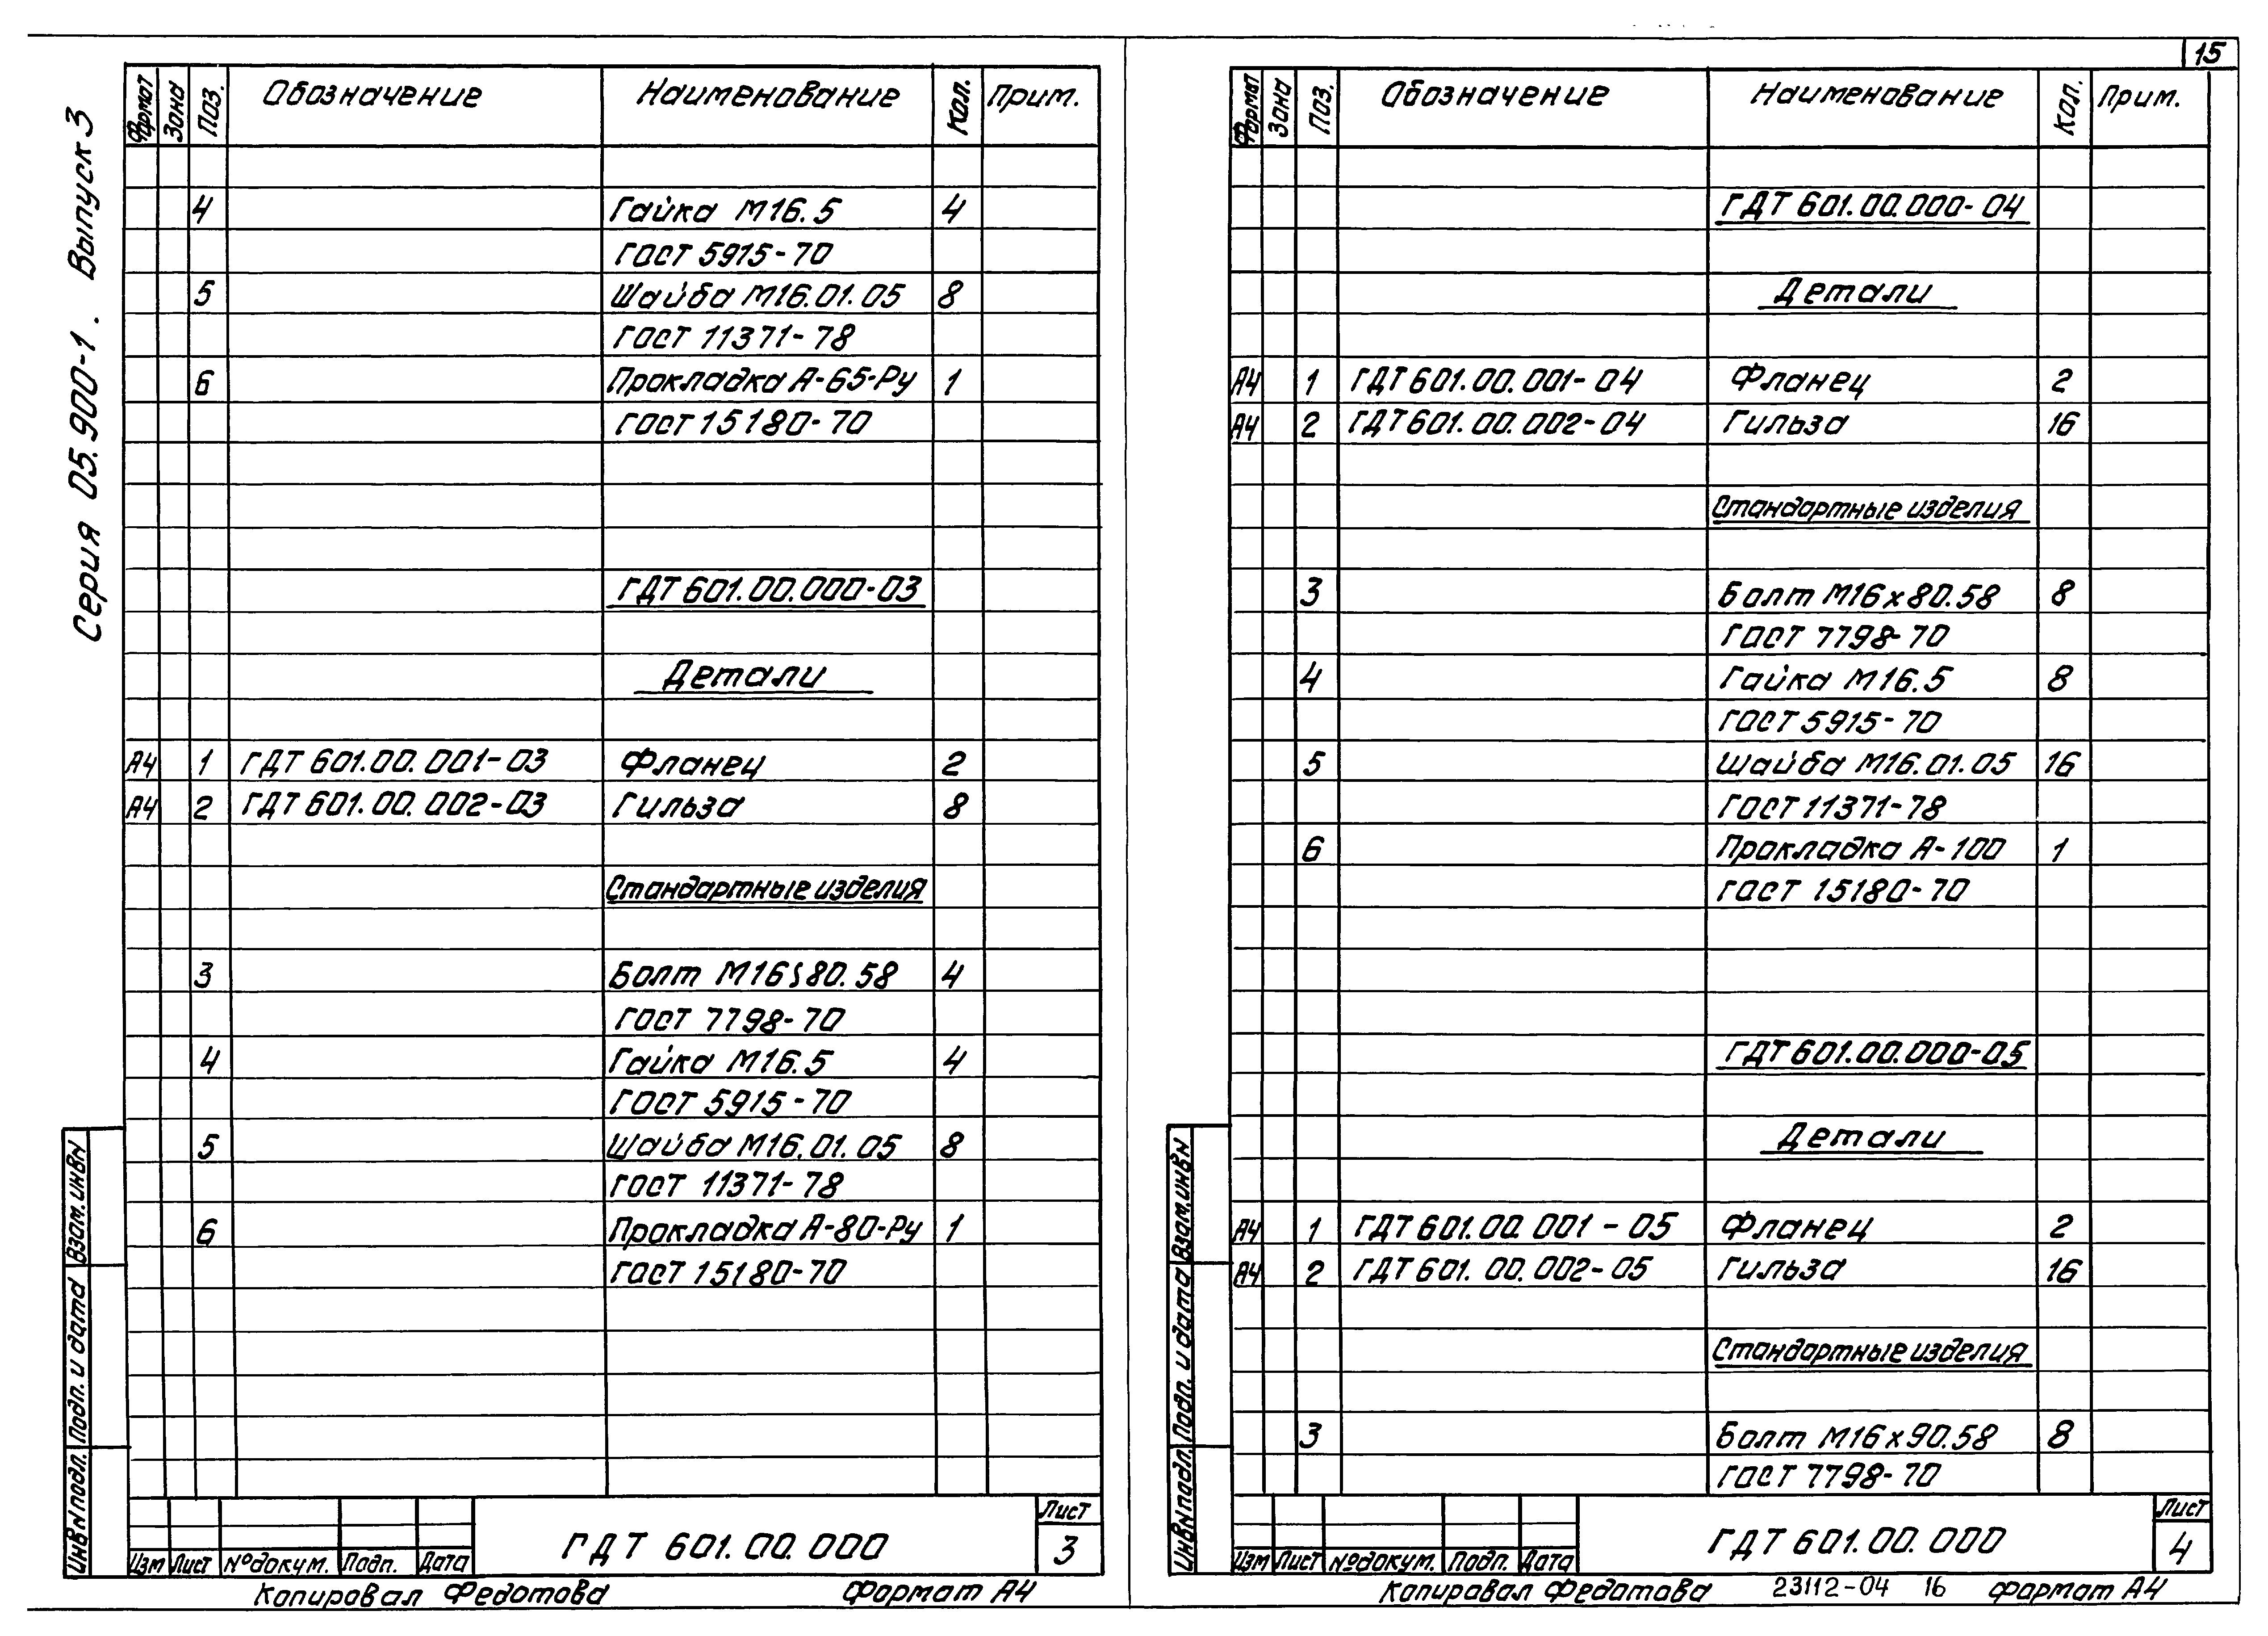 15
Серия 05.900-1. Выпуск 3
Формат Зона Поз. Обозначение Наименование Кол. Прим.
4 Гайка М16.5 4
ГОСТ 5915-70
5 Шайба М16.01.05 8
ГОСТ 11371-78
6 Прокладка А-65-Ру 1
ГОСТ 15180-70
ГДТ 601.00.000-03
Детали
А4 1 ГДТ 601.00.001-03 Фланец 2
А4 2 ГДТ 601.00.002-03 Гильза 8
Стандартные изделия
3 Болт М16х80.58 4
ГОСТ 7798-70
4 Гайка М16.5 4
ГОСТ 5915-70
5 Шайба М16.01.05 8
ГОСТ 11371-78
6 Прокладка А-80-Ру 1
ГОСТ 15180-70
Инв№подл. Подп. и дата Взам.инв№
Изм Лист №докум. Подп. Дата
ГДТ 601.00.000
Лист
3
Копировал Федотова Формат А4
Формат Зона Поз. Обозначение Наименование Кол. Прим.
ГДТ 601.00.000-04
Детали
А4 1 ГДТ 601.00.001-04 Фланец 2
А4 2 ГДТ 601.00.002-04 Гильза 16
Стандартные изделия
3 Болт М16х80.58 8
ГОСТ 7798-70
4 Гайка М16.5 8
ГОСТ 5915-70
5 Шайба М16.01.05 16
ГОСТ 11371-78
6 Прокладка А-100 1
ГОСТ 15180-70
ГДТ 601.00.000-05
Детали
А4 1 ГДТ 601.00.001-05 Фланец 2
А4 2 ГДТ 601.00.002-05 Гильза 16
Стандартные изделия
3 Болт М16х90.58 8
ГОСТ 7798-70
Инв№подл. Подп. и дата Взам.инв№
Изм Лист №докум. Подп. Дата
ГДТ 601.00.000
Лист
4
Копировал Федотова 23112-04 16 Формат А4